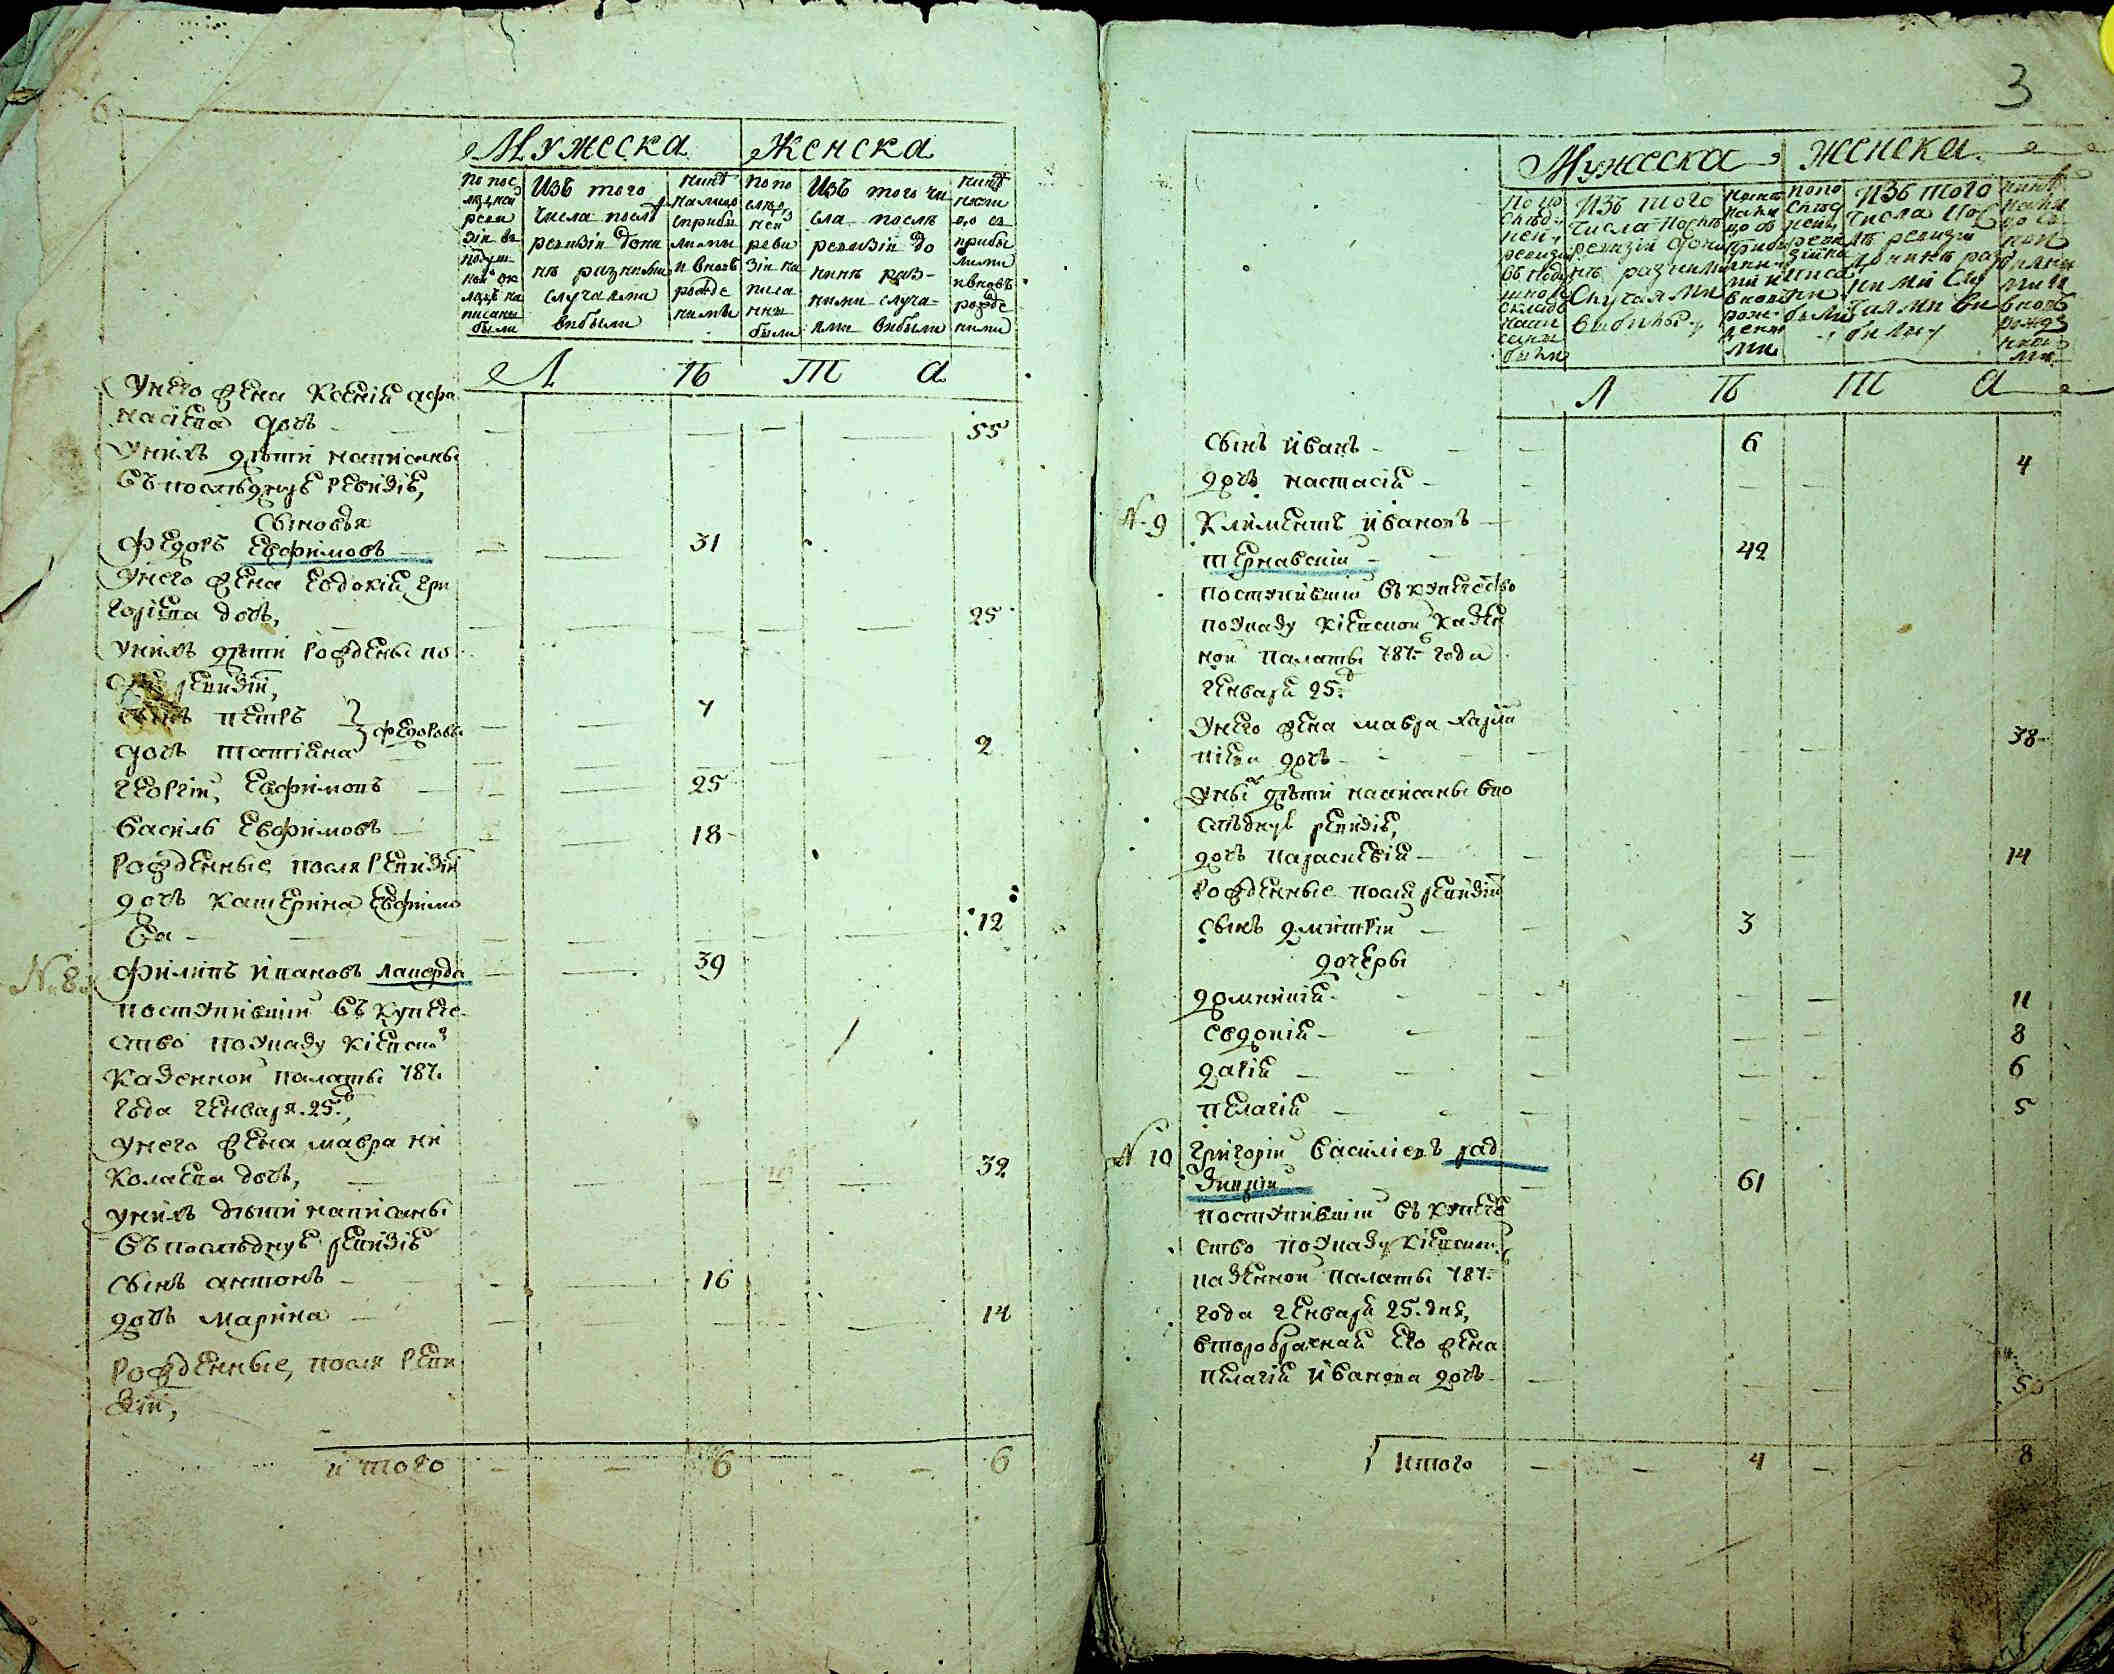 Мужеска Женска
По пос
лѣдней
реви
зіи въ
подуш
ной ок
ладъ на
писаны
были
Изъ того
числа послѣ
ревизіи до ни
нѣ разними
случаями
вибыли
нинѣ
на лицо
сприбы
лыми
и вновь
рожде
ними
По по
слѣд
ней
реви
зіи на
писа
нии
были
Изъ того чи
сла послѣ
ревизіи до
нинѣ раз-
ними случа-
ями вибыли
нинѣ
нали
цо съ
прибы
лими
ивновь
рожде
ними
Л Ѣ Т А
Унего жена Ксенія Афа
насіева дочь 55
Унихъ дѣти написаны
Въ послѣднуе ревизіе,
Сыновья
Федоръ Евфимовъ 31
Унего жена Евдокія Гри
горіева дочь, 25
унихъ дѣти рождены по
ревизіи,
сынъ Петръ 7
Федоровы
дочь Татіяна 2
Георгій Евфимовъ 25
Василь Евфимовъ 18
Рожденные после ревизіи
дочь Катерина Евфимо
ва 12
№ 8 Филипъ Ивановъ Лаперда 39
поступившій въ купече-
ство по указу кіевской
Казенной палаты 787.
года генваря 25.
Унего жена Мавра Ни
колаева дочь, 32
унихъ дѣти написаны
Въ послѣднуе ревизіе
сынъ Антонъ 16
дочь Марина 14
Рожденные, после реви
зіи,
Итого 6 6
3
Мужеска Женска
Изъ того
числа послѣ
ревизіи до ни
нѣ разними
случаями
вибили
Изъ того
числа пос
лѣ ревизіи
до нинѣ раз
ними слу
чаями ви
били
Л Ѣ Т А
сынъ Иванъ 6
дочь Настасія 4
№ 9 Климентъ Ивановъ
Тернавскій 42
поступившій въ купечество
по указу кіевской казен
ной палаты 787. года
генваря 25.
Унего жена Мавра Харли
піева дочь 38
дѣти написаны впо
слѣднуе ревизіе,
дочь Параскевія 14
Рожденные после ревизіи
сынъ Дмитрій 3
дочеры
Домникія 11
Евдокія 8
Дарія 6
Пелагія 5
№ 10 Григорій Василіевъ Рад
зицкій 61
поступившій въ купече
ство по указу кіевской
казенной палаты 787.
года генваря 25. дня,
второбрачная его жена
Пелагія Иванова дочь 50
Итого 4 8